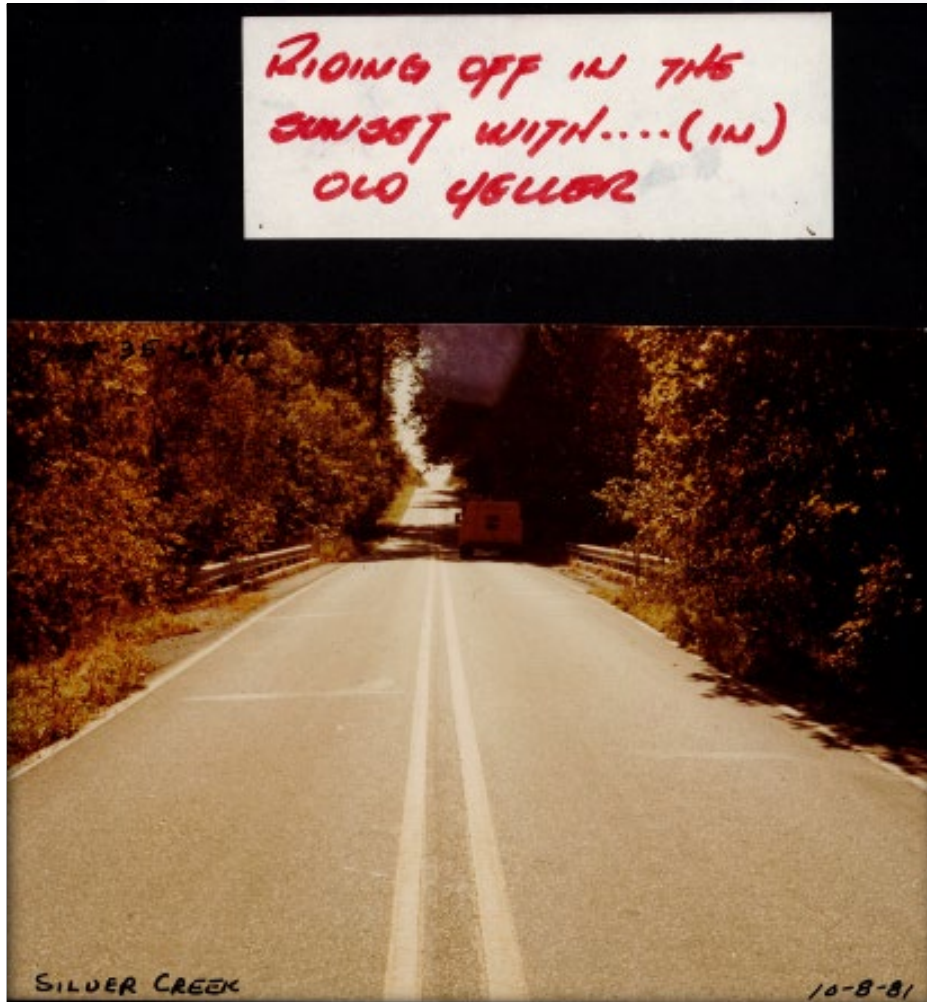 RIDING OFF IN THE
SUNSET WITH....(IN)
OLD YELLER
SILVER CREEK
10-8-81